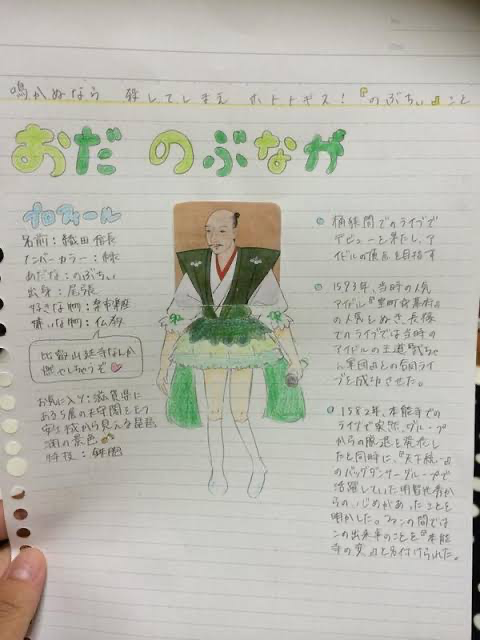 鳴かぬなら 殺してしまえ ホトトギス！『のぶちぃ』こと
おだ のぶなが
プロフィール
名前：織田信長
ナンバーカラー：緑
あだな：のぶちぃ
出身：尾張
好きな物：楽市楽座
嫌いな物：仏教
比叡山延暦寺なんか
燃やしちゃうぞ♥
お気に入り：滋賀県に
ある5層の天守閣をもつ
安土城から見える琵琶
湖の景色
特技：鉄砲
桶狭間でのライブで
デビューを果たし、ア
イドルの頂点を目指す
1573年、当時の人気
アイドル『室町幕府』
の人気をしのぎ、長篠
でのライブでは当時の
アイドルの王道
軍団』との合同ライ
ブを成功させた。
1582年、本能寺での
ライブで突然、グループ
からの脱退を発表し
たと同時に、『天下統一』
のバックダンサーグループで
活躍していた明智光秀か
らの、いじめがあったことを
明かした。ファンの間では
この出来事のことを『本能
寺の変』と名付けられた。